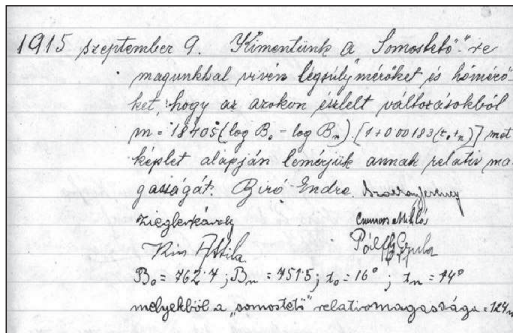 1915 szeptember 9. Kimentünk a "Somostető"-re
magunkkal vivén légsúlymérőket és hőmérő
ket, hogy az azokon észlelt változásokból
m = 18405 (log B₀ - log Bₙ) . [1+000183(t₀+tₙ)] met
képlet alapján lemérjük annak relativ ma
gasságát. Biró Endre.
Ziegler Károly Csonos Miklós
Kiss Attila Pálffy Gyula
B₀ = 762·7 ; Bₙ = 751·5 ; t₀ = 16° ; tₙ = 14°
melyekből a „somostető" relativmagassága = 124 m